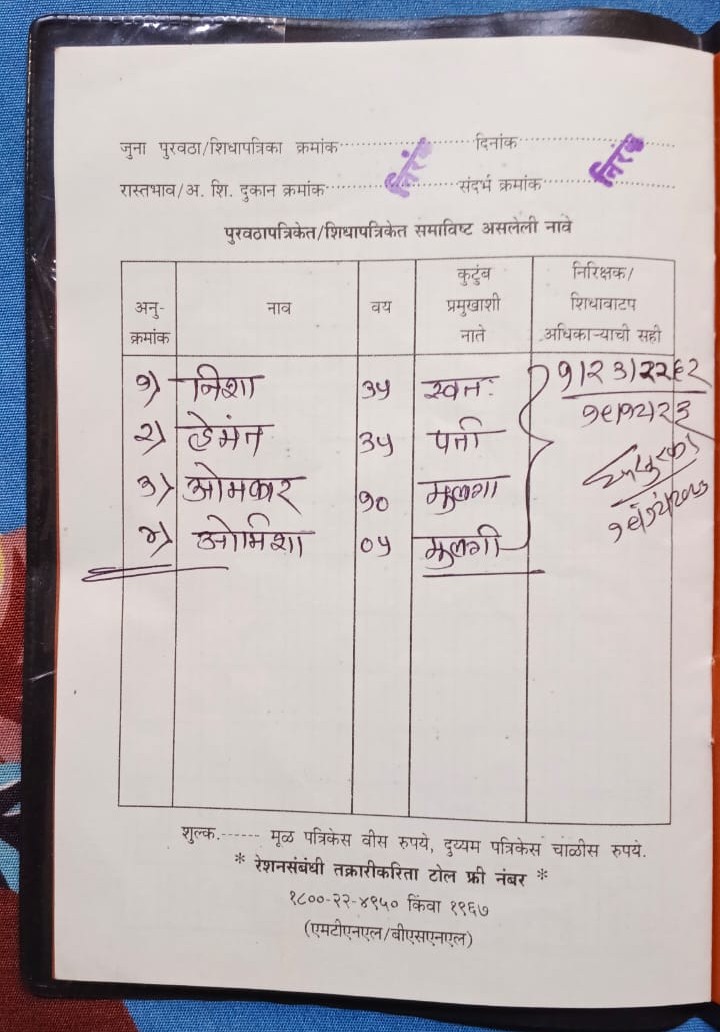 जुना पुरवठा/शिधापत्रिका क्रमांक........................दिनांक........................
रास्तभाव/अ. शि. दुकान क्रमांक........................संदर्भ क्रमांक........................
निरंक निरंक
पुरवठापत्रिकेत/शिधापत्रिकेत समाविष्ट असलेली नावे
अनु-क्रमांक नाव वय कुटुंब प्रमुखाशी नाते निरिक्षक/शिधावाटप अधिकाऱ्याची सही
१) निशा ३५ स्वतः १/२३/२२६२
२) हेमंत ३५ पती १९/१२/२३
३) ओमकार १० मुलगा
४) ओर्मिशा ०५ मुलगी १९/१२/२०२३
शुल्क.------ मूळ पत्रिकेस वीस रुपये, दुय्यम पत्रिकेस चाळीस रुपये.
* रेशनसंबंधी तक्रारीकरिता टोल फ्री नंबर *
१८००-२२-४९५० किंवा १९६७
(एमटीएनएल/बीएसएनएल)